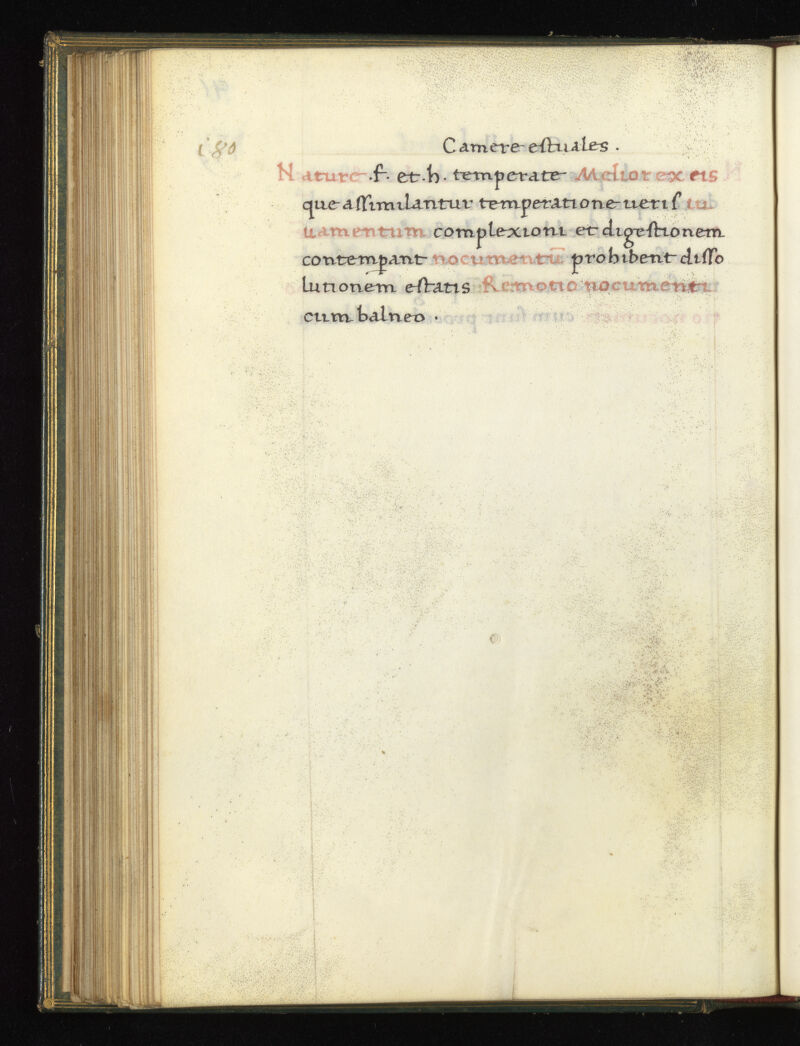 i80
Camere estuales .
Nature .f. et .h. temperate Melior ex eis
que assimilantur temperatione ueris iu
uamentum complexioni et digestionem
contempant nocumentū prohibent disso
lutionem estatis Remotio nocumenti
cum balneo .